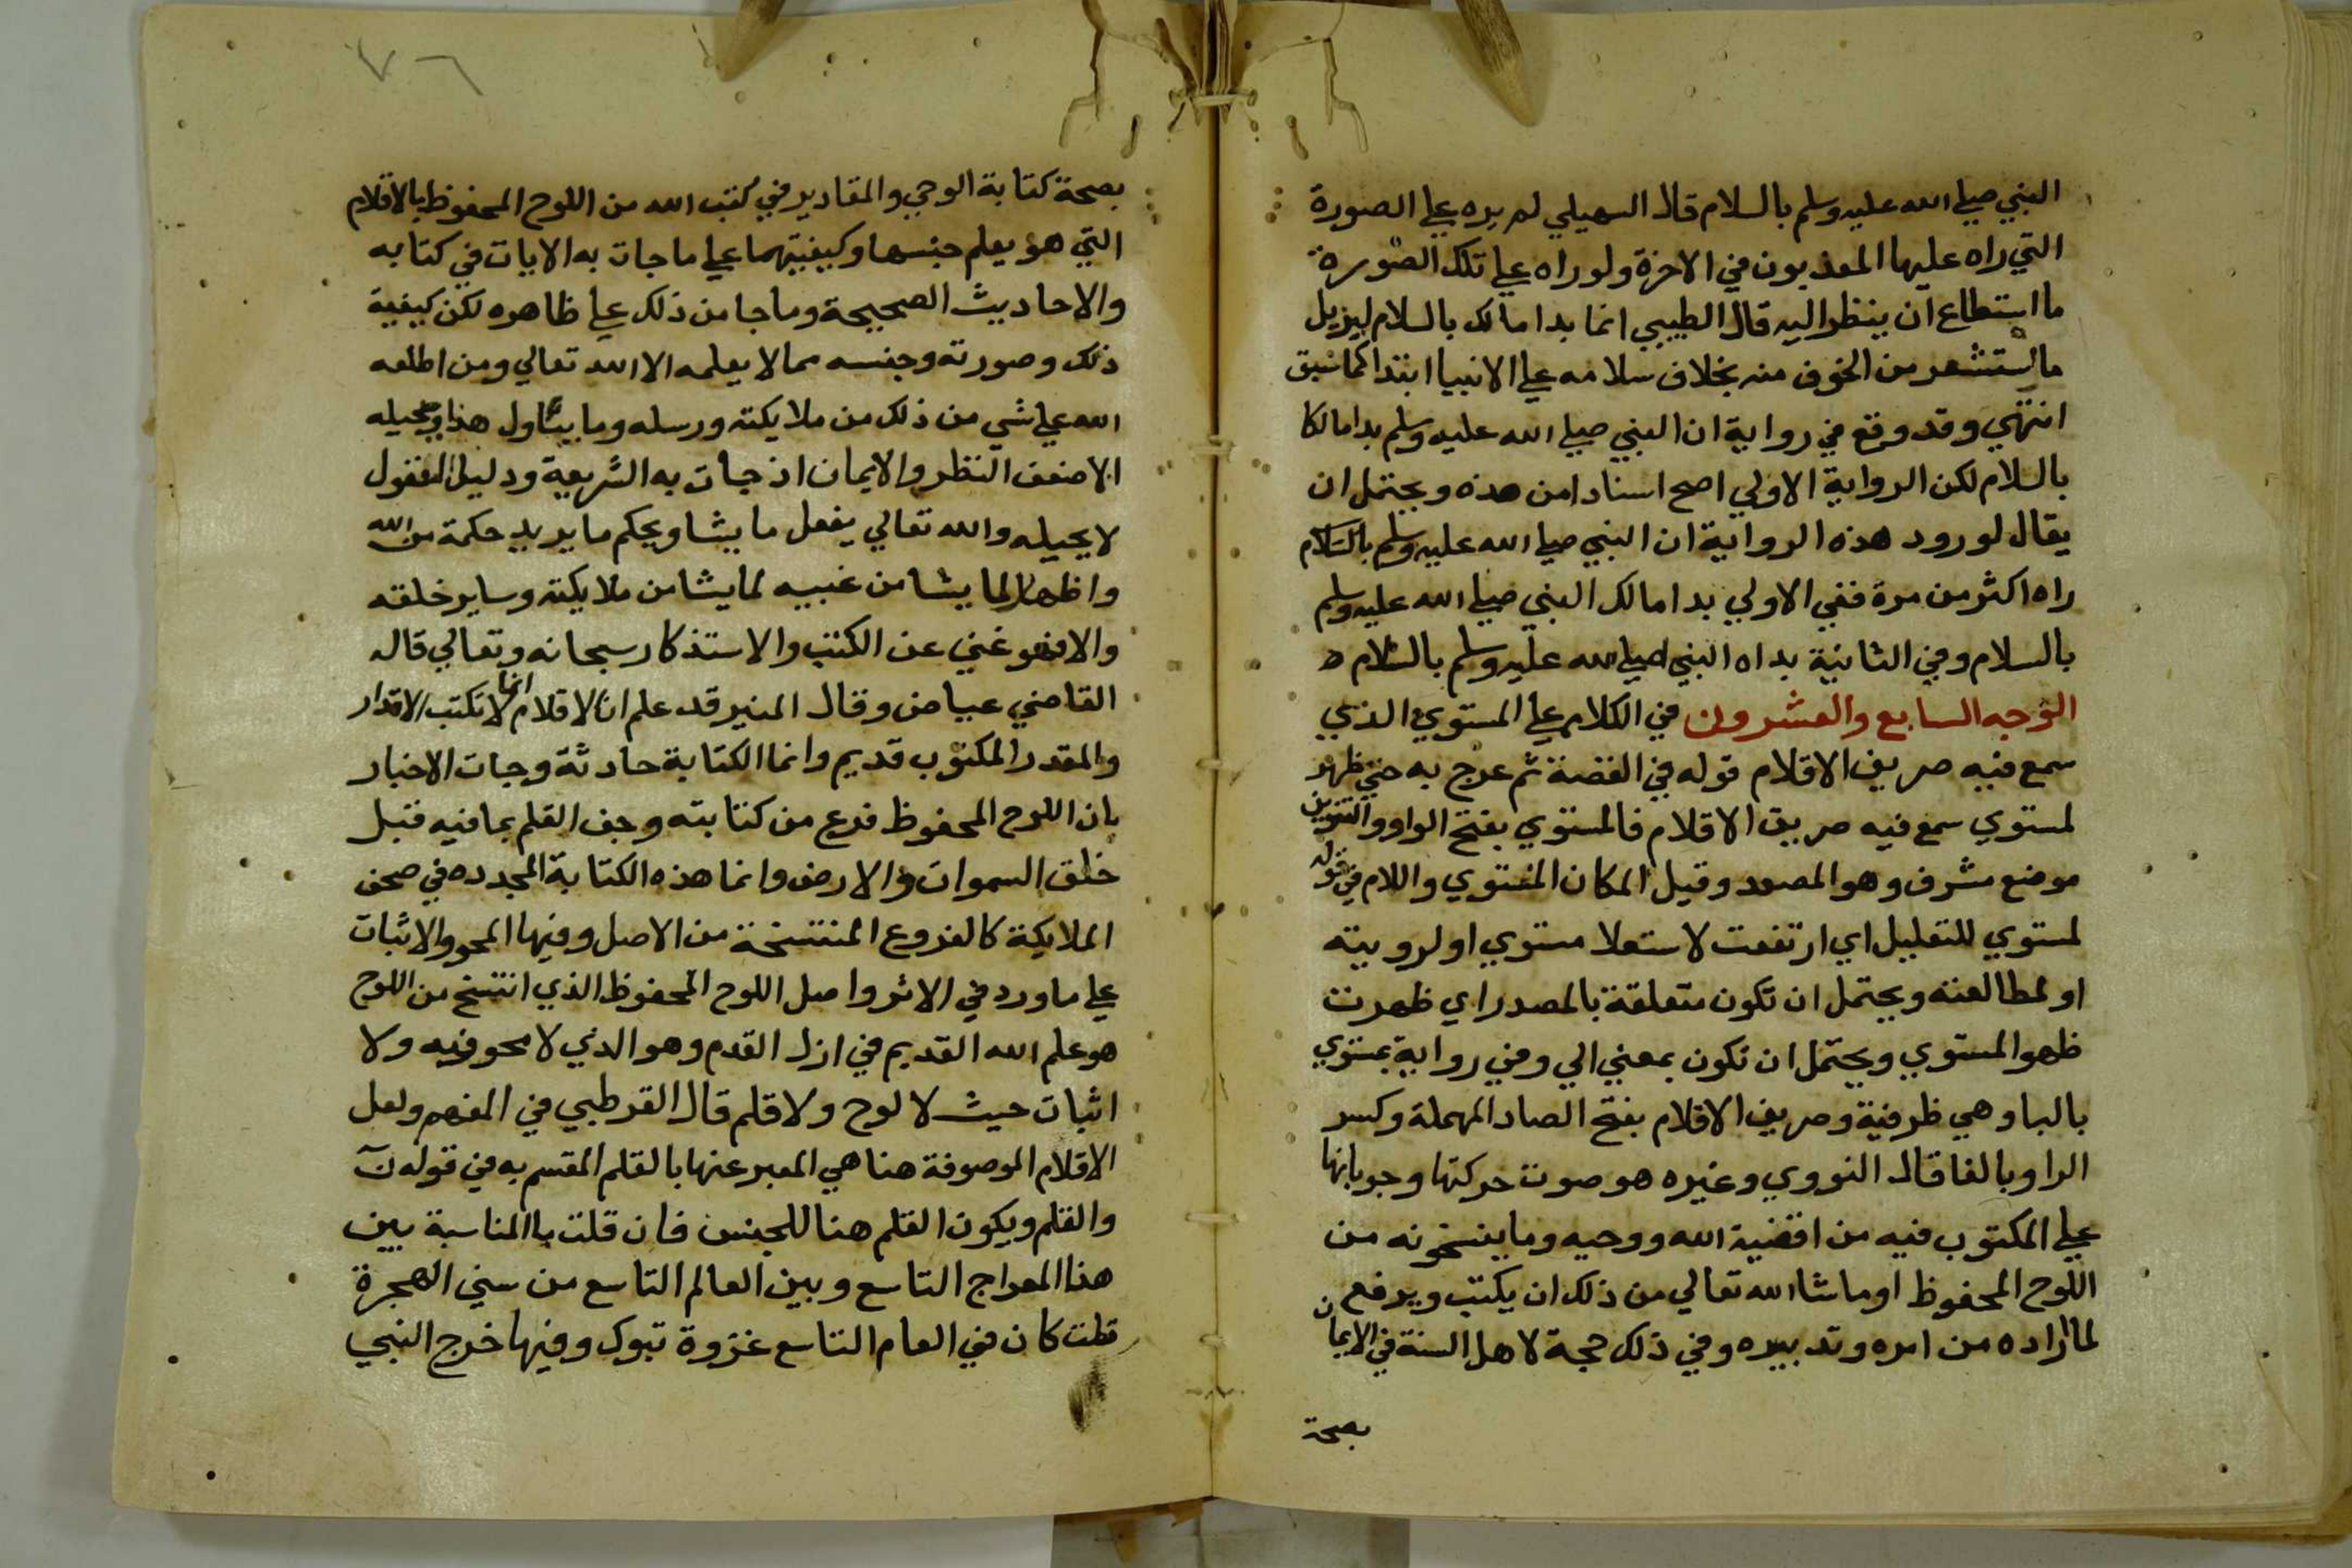 النبي صلي الله عليه وسلم بالسلام قال السهيلي لم يره علي الصورة
التي راه عليها المعذبون في الاخرة ولو راه علي تلك الصورة
ما استطاع ان ينظر اليه قال الطيبي انما بدا مالك بالسلام ليزيل
ما استشعر من الخوف منه بخلاف سلامه علي الانبيا ابتدا كما سبق
انتهي وقد وقع في رواية ان النبي صلي الله عليه وسلم بدا مالكا
بالسلام لكن الرواية الاولي اصح اسنادا من هذه ويحتمل ان
يقال لورود هذه الرواية ان النبي صلي الله عليه وسلم بالسلام
راه اكثر من مرة ففي الاولي بدا مالك النبي صلي الله عليه وسلم
بالسلام وفي الثانية بداه النبي صلي الله عليه وسلم بالسلام ه
الوجه السابع والعشرون في الكلام علي المستوي الذي
سمع فيه صريف الاقلام قوله في القصة ثم عرج به حتي ظهر
لمستوي سمع فيه صريف الاقلام فالمستوي بفتح الواو والتنوين
موضع مشرف وهو المصعد وقيل المكان المستوي واللام في قوله
لمستوي للتعليل اي ارتفعت لاستعلا مستوي او لرويته
او لمطالعته ويحتمل ان تكون متعلقة بالمصدر اي ظهرت
ظهو المستوي ويحتمل ان تكون بمعني الي وفي رواية بمستوي
بالبا وهي ظرفية وصريف الاقلام بفتح الصاد المهملة وكسر
الرا وبالفا قال النووي وغيره هو صوت حركتها وجريانها
علي المكتوب فيه من اقضية الله ووحيه وما ينسخونه من
اللوح المحفوظ او ما شا الله تعالي من ذلك ان يكتب ويرفع
لما اراده من امره وتدبيره وفي ذلك حجة لاهل السنة في الايمان
بصحة
٧٦
بصحة كتابة الوحي والمقادير في كتب الله من اللوح المحفوظ بالاقلام
التي هو يعلم جنسها وكيفيتهما علي ما جات به الايات في كتابه
والاحاديث الصحيحة وما جا من ذلك علي ظاهره لكن كيفية
ذلك وصورته وجنسه مما لا يعلمه الا الله تعالي ومن اطلعه
الله علي شي من ذلك من ملايكته ورسله وما يتاول هذا ويحيله
الا ضعف النظر والايمان اذ جات به الشريعة ودليل العقول
لا يحيله والله تعالي يفعل ما يشا ويحكم ما يريد حكمة من الله
واظهارا لما يشا من غيبه لما يشا من ملايكته وساير خلقته
والا فهو غني عن الكتب والاستذكار سبحانه وتعالي قاله
القاضي عياض وقال المنير قد علم ان الاقلام انما لا تكتب الاقدار
والمقدر المكتوب قديم وانما الكتابة حادثة وجات الاخبار
بان اللوح المحفوظ فرع من كتابته وجف القلم بما فيه قبل
خلق السموات والارض وانما هذه الكتابة المجدده في صحف
الملايكة كالفروع المنتسخة من الاصل وفيها المحو والاثبات
علي ما ورد في الاثر واصل اللوح المحفوظ الذي انتسخ من اللوح
هو علم الله القديم في ازل القدم وهو الذي لا محو فيه ولا
اثبات حيث لا لوح ولا قلم قال القرطبي في المفهم ولعل
الاقلام الموصوفة هنا هي المعبر عنها بالقلم المقسم به في قوله ن
والقلم ويكون القلم هنا للجنس فان قلت با المناسبة بين
هذا المعراج التاسع وبين العالم التاسع من سني الهجرة
قلت كان في العام التاسع غزوة تبوك وفيها خرج النبي